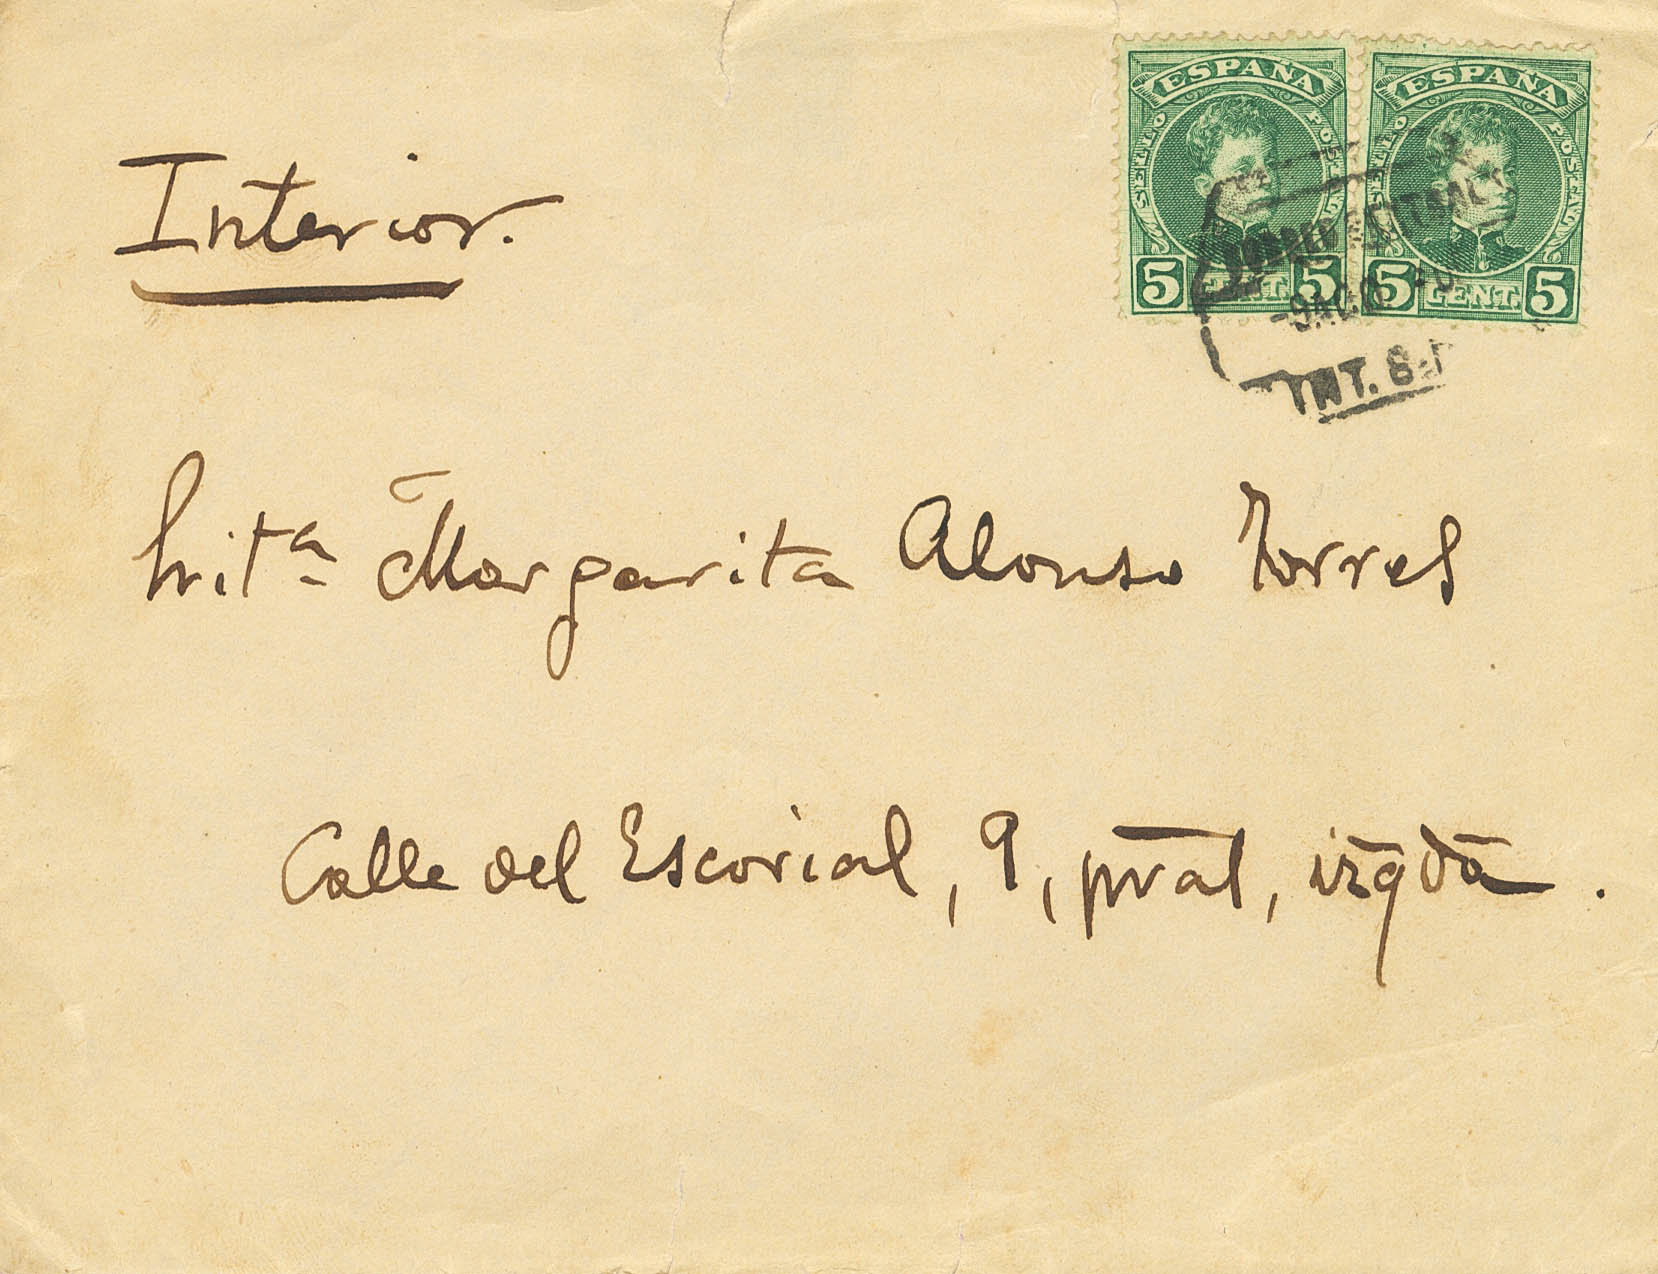 ESPAÑA ESPAÑA
SELLO POSTAL SELLO POSTAL
5 CENT. 5 5 CENT. 5
CENTRAL
INT.
Interior.
Srita Margarita Alonso Torres
Calle del Escorial, 9, pral, izqda.